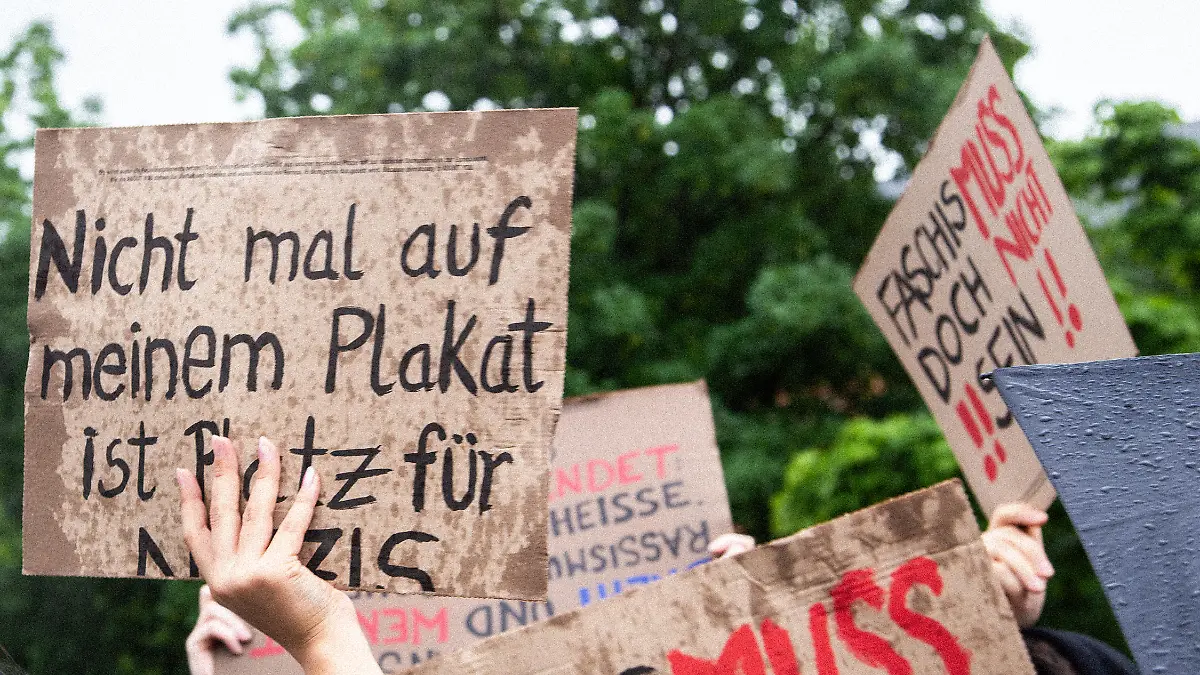 Nicht mal auf
meinem Plakat
ist Platz für
NAZIS
FASCHISMUSS
DOCH NICHT
!! SEIN !!
NDET
HEISSE.
RASSISMU
UND
MUSS